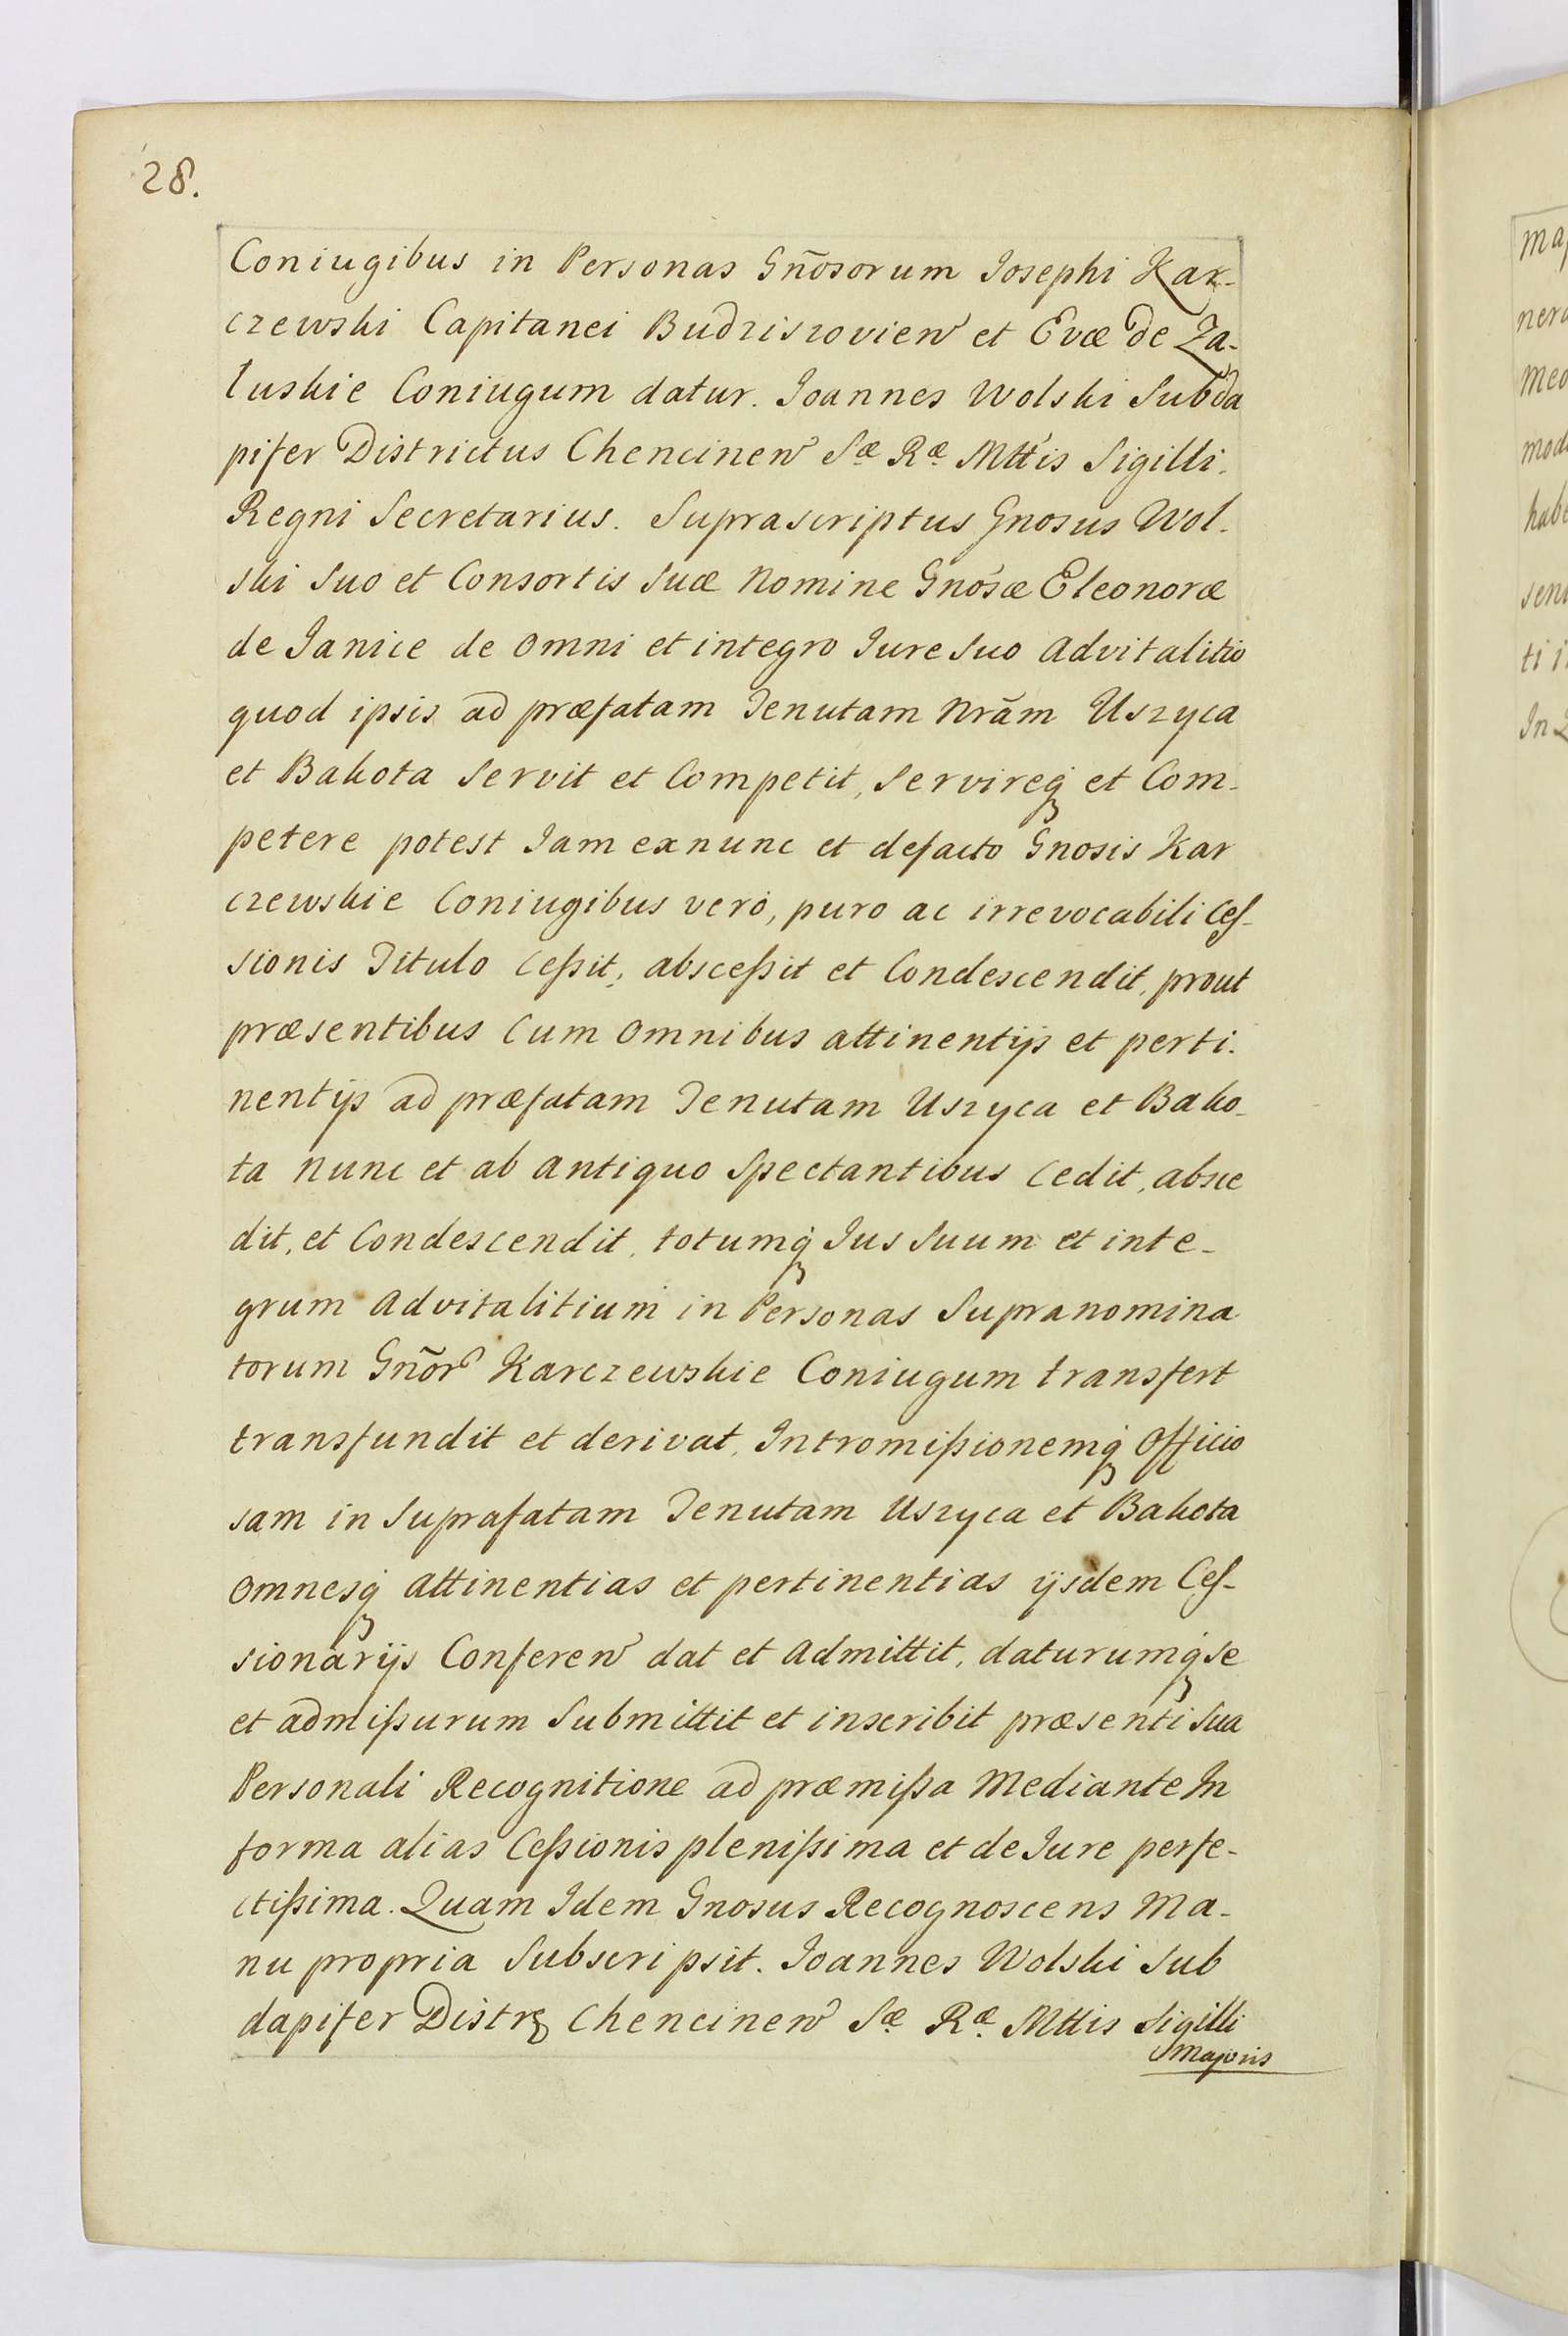 28.
Coniugibus in Personas Gñosorum Iosephi Kar-
czewski Capitanei Budziszovien et Evæ de Za-
luskie Coniugum datur. Ioannes Wolski Subda
pifer Districtus Chencinen Sæ Ræ Mttis Sigilli.
Regni Secretarius. Suprascriptus Gnosus Wol-
ski Suo et Consortis Suæ Nomine Gnosæ Eleonoræ
de Ianice de omni et integro Iure Suo Advitalitio
quod ipsis ad præfatam Tenutam Nrãm Uszyca
et Bakota Servit et Competit, Servireq́ et Com-
petere potest Iam exnunc et defacto Gnosis Kar
czewskie Coniugibus vero, puro ac irrevocabili Ces-
sionis Titulo Ceßit, absceßit et Condescendit, prout
præsentibus Cum omnibus attinentijs et perti-
nentijs ad præfatam Tenutam Uszyca et Bako-
ta nunc et ab antiquo Spectantibus Cedit, absce
dit, et Condescendit, totumq́ Ius Suum et inte-
grum Advitalitium in Personas Supranomina
torum Gñor Karczewskie Coniugum transfert
transfundit et derivat, Intromißionemq́ Officio
sam in Suprafatam Tenutam Uszyca et Bakota
omnesq́ attinentias et pertinentias ijsdem Ces-
sionarijs Conferen dat et Admittit, daturumq́ se
et admißurum Submittit et inscribit præsenti Sua
Personali Recognitione ad præmißa Mediante In
forma alias Ceßionis plenißima et de Iure perfe-
ctißima. Quam Idem Gnosus Recognoscens Ma-
nu propria Subscripsit. Ioannes Wolski Sub
dapifer Distr Chencinen Sæ Ræ Mttis Sigilli
Majoris